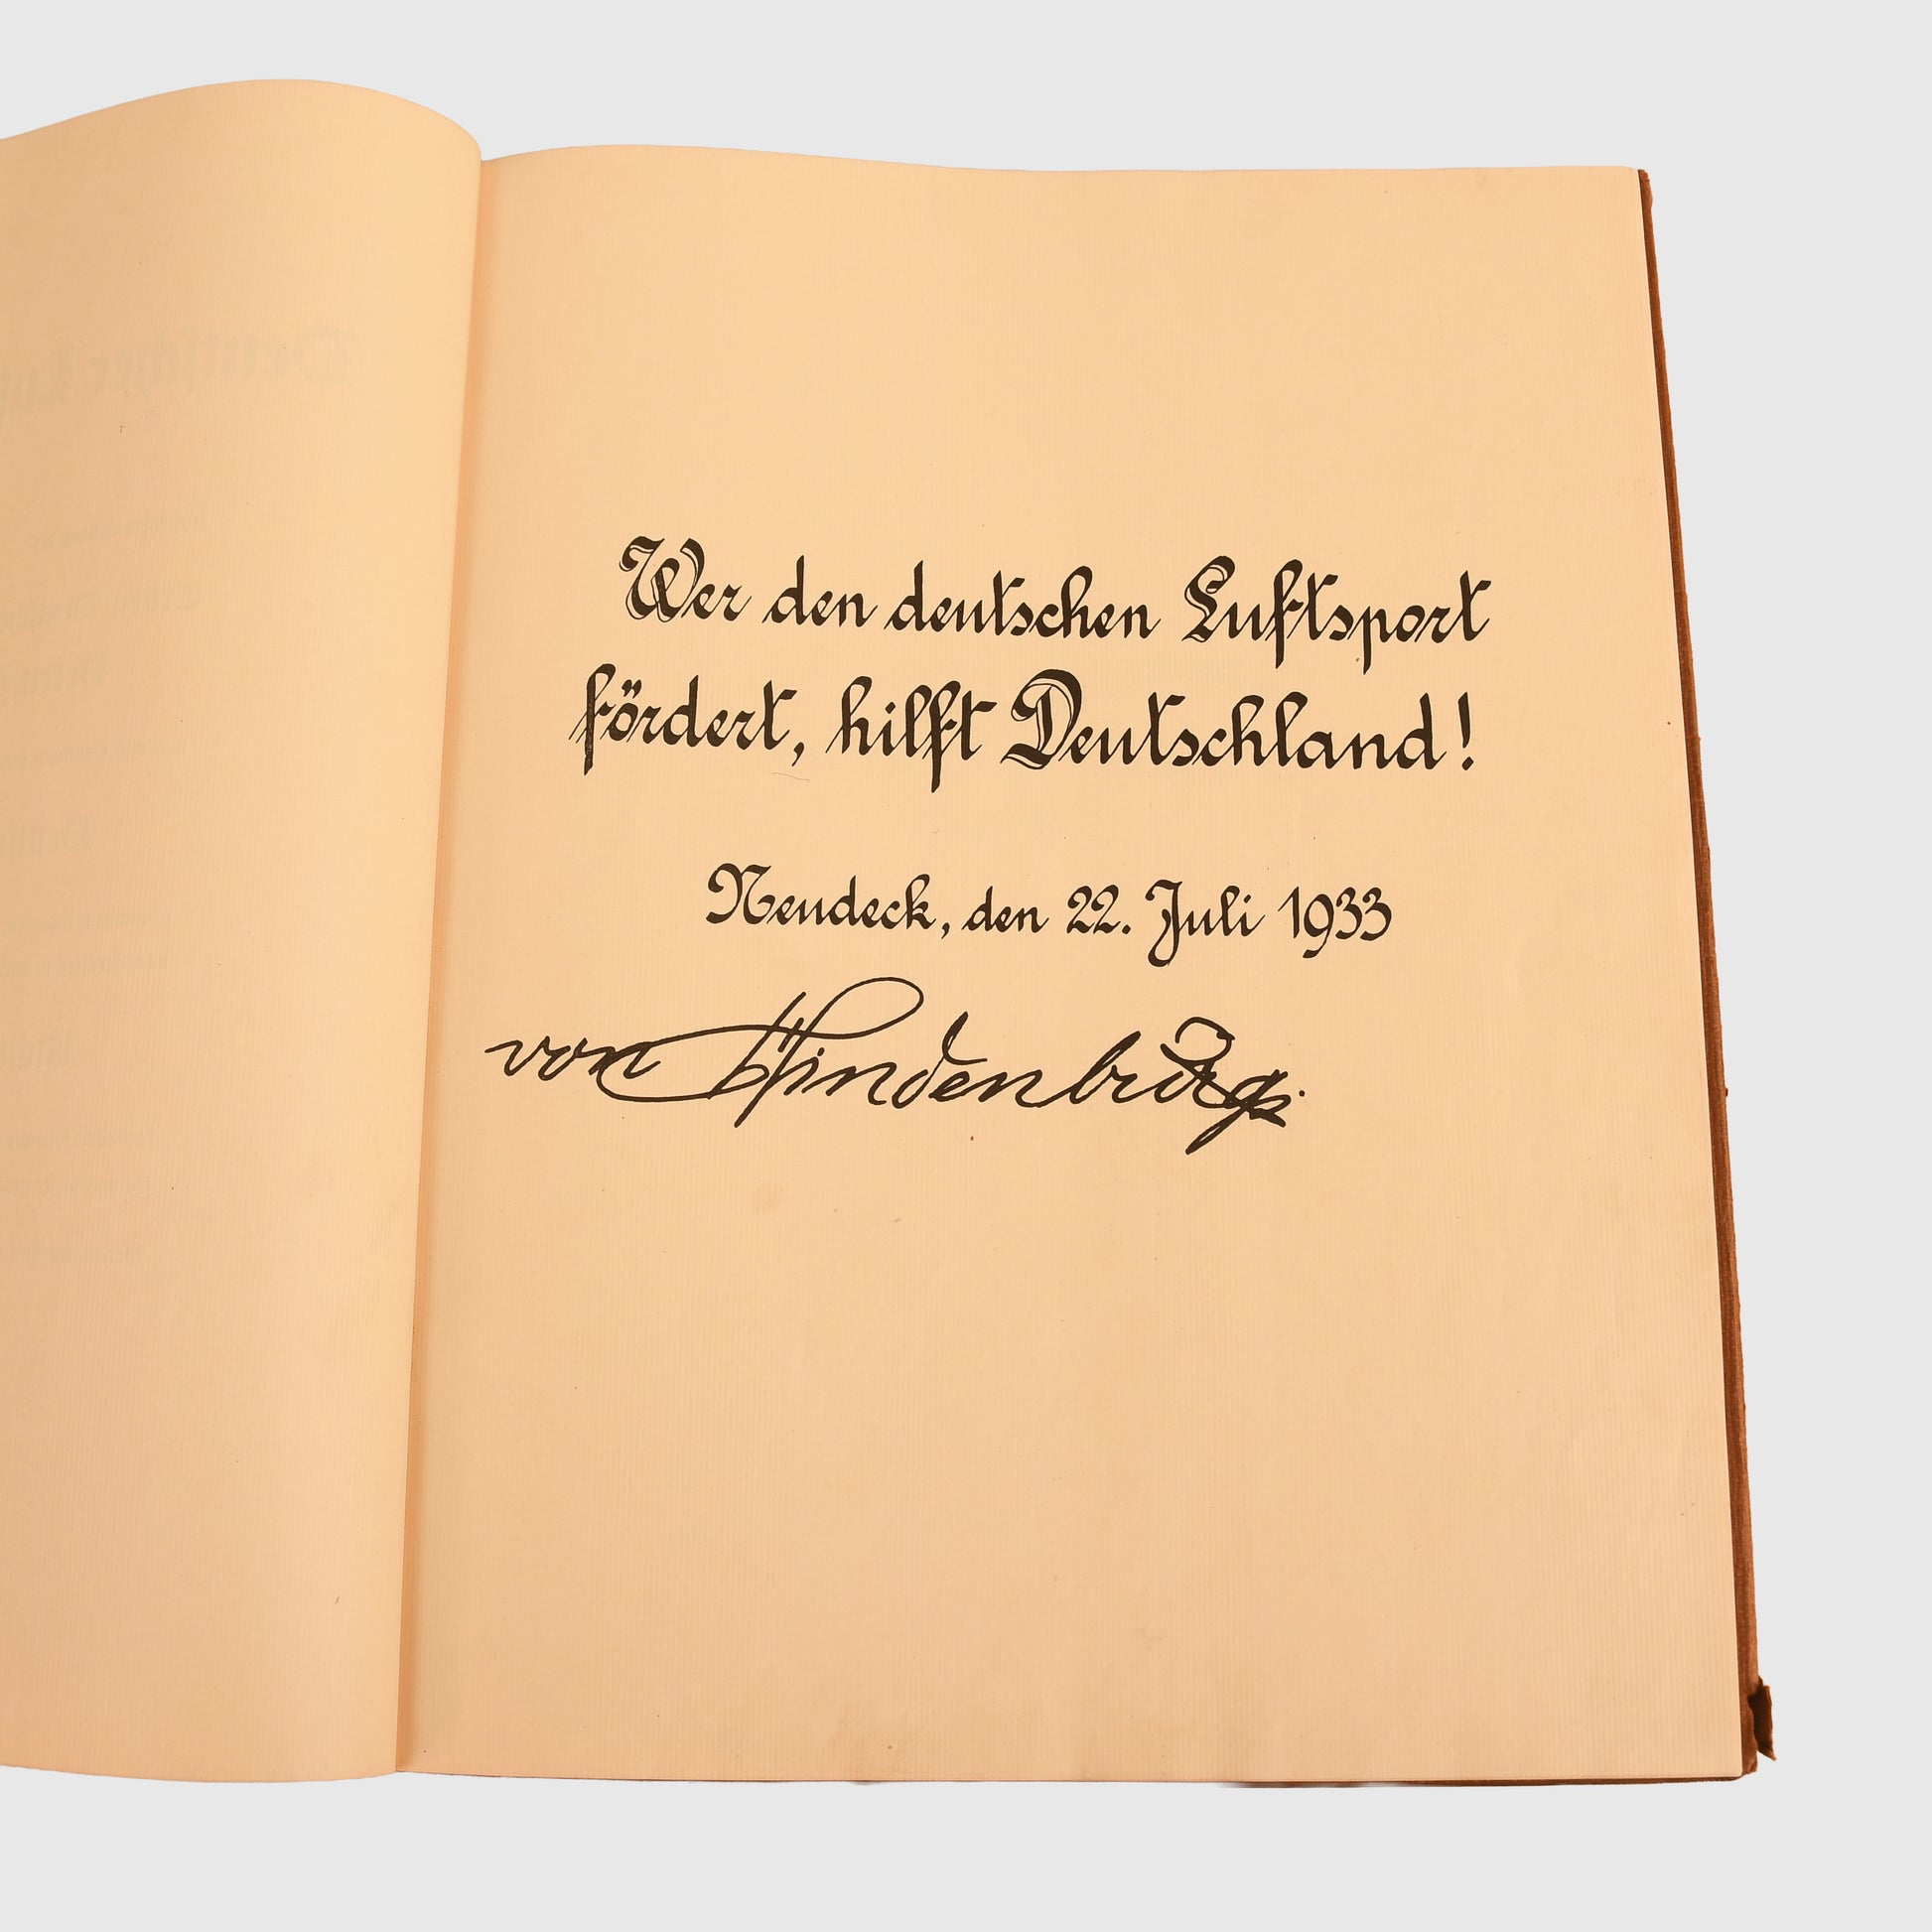 Wer den deutschen Luftsport
fördert, hilft Deutschland!
Neudeck, den 22. Juli 1933
von Hindenburg.
Deutscher